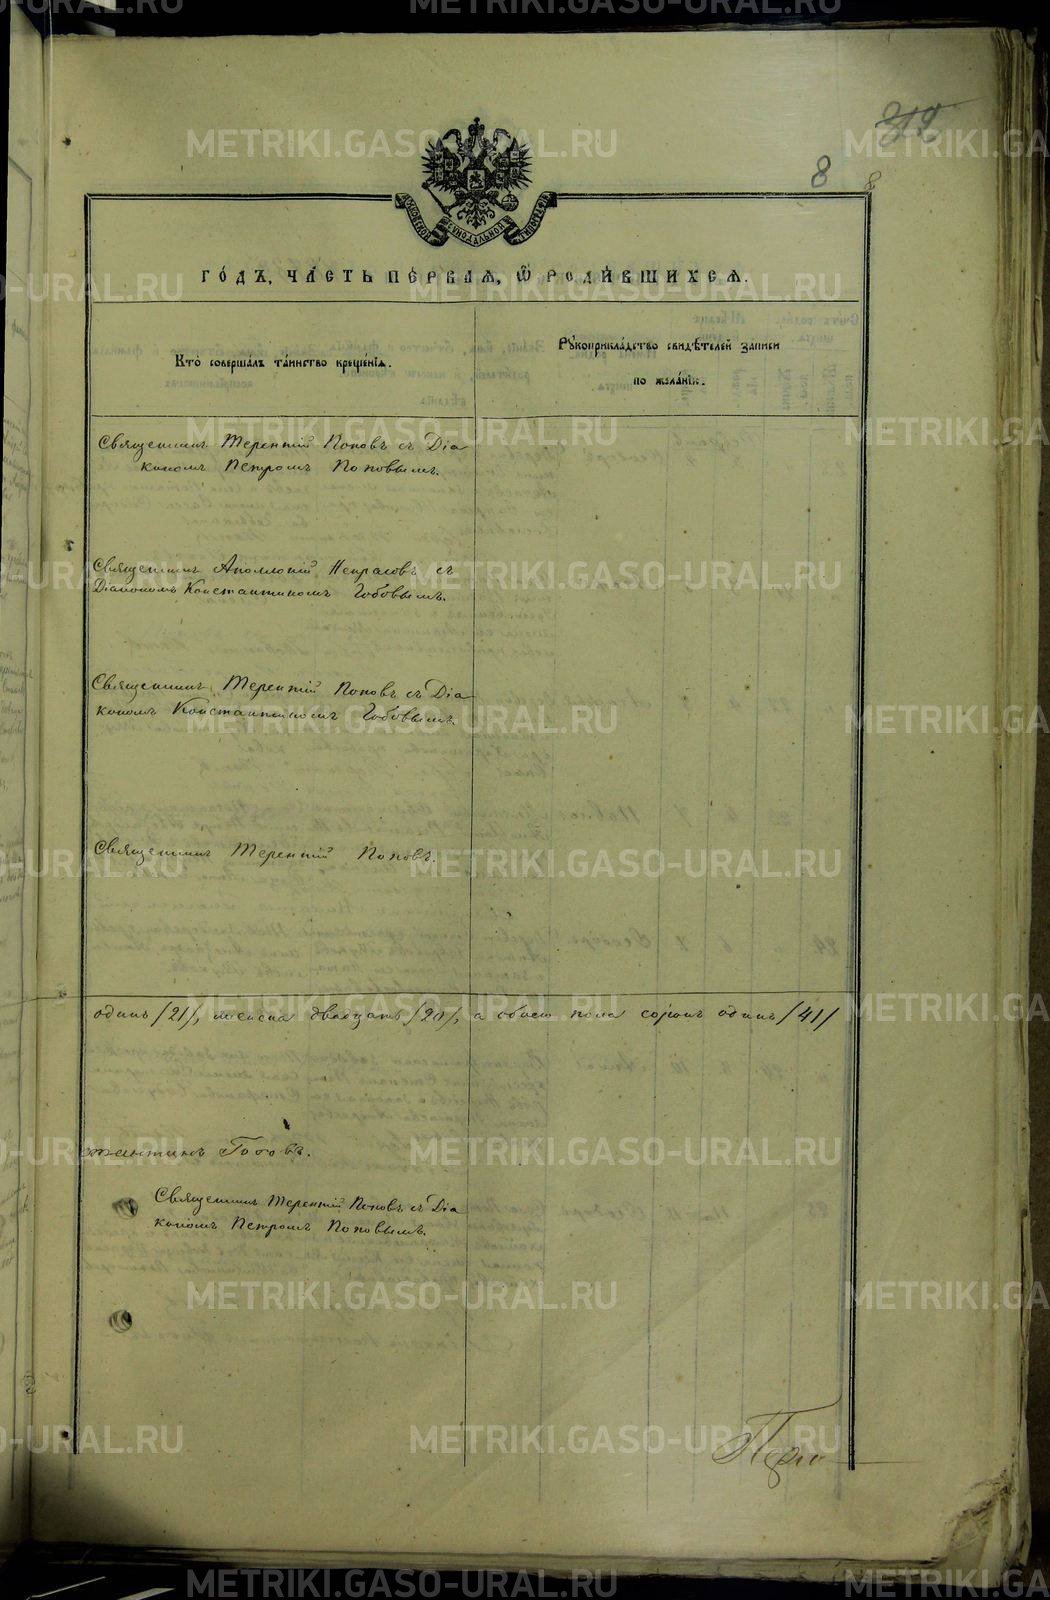 312
8
8
МОСКОВСКОЙ СѴНОДАЛЬНОЙ ТИПОГРАФІИ
ГО́ДЪ, ЧА́СТЬ ПЕ́РВАЯ, Ѿ РОДИ́ВШИХСЯ.
Кто̀ соверша́лъ та́инство креще́нїѧ.
Рꙋкоприкла́дство свидѣ́телей за́писи
по жела́нїю.
Священникъ Терентій Поповъ съ Діа
кономъ Петромъ Поповымъ.
Священникъ Аполлоній Некрасовъ съ
Діакономъ Константиномъ Гобовымъ.
Священникъ Терентій Поповъ съ Діа
кономъ Константиномъ Гобовымъ.
Священникъ Терентій Поповъ.
одинъ /21/, женска двадцать /20/, а обоего пола сорокъ одинъ /41/
стантинъ Гобовъ.
Священникъ Терентій Поповъ съ Діа
кономъ Петромъ Поповымъ.
METRIKI.GASO-URAL.RU